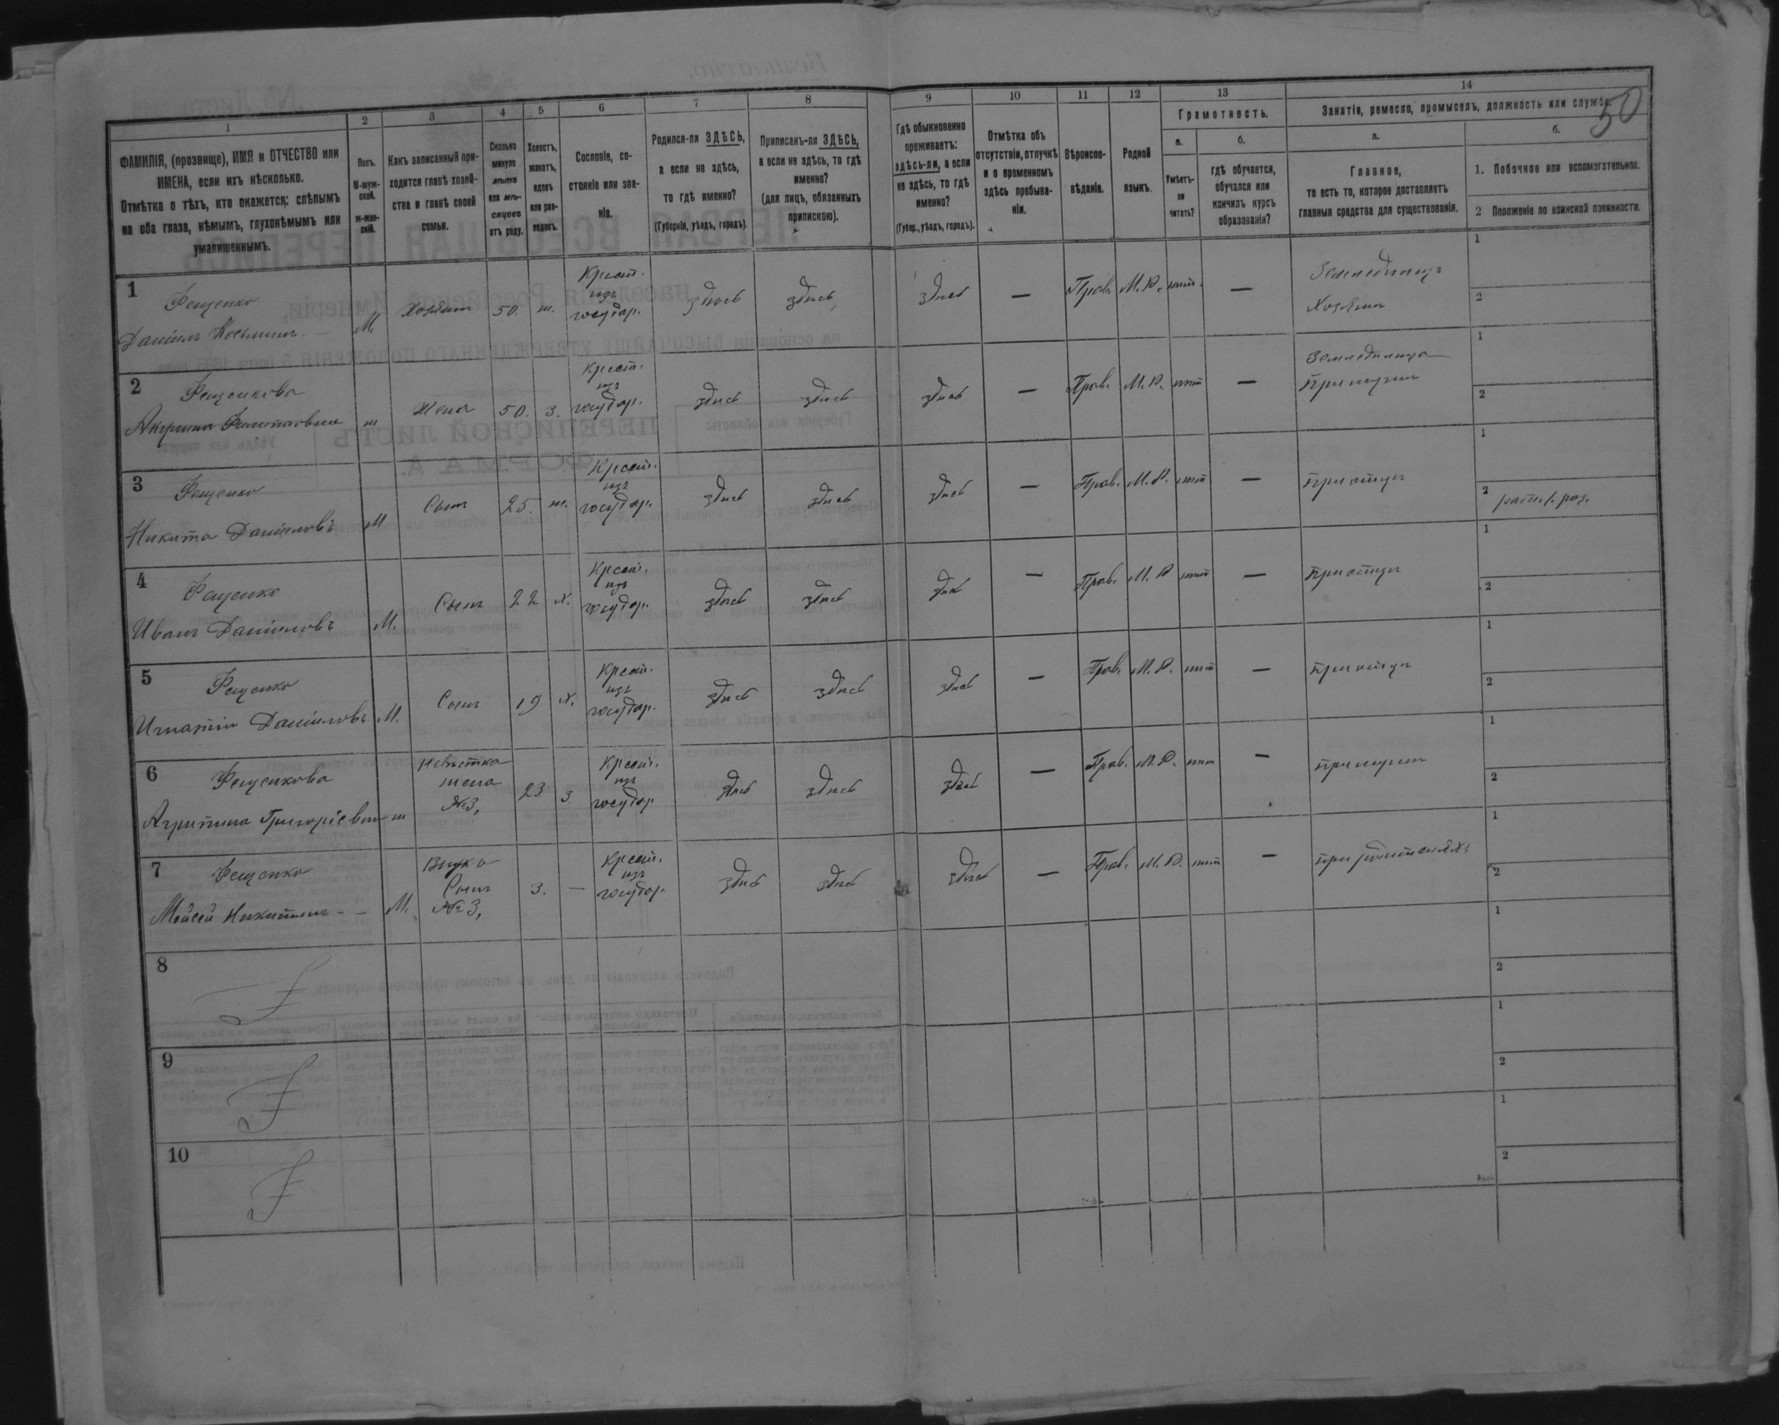 50
1
ФАМИЛІЯ, (прозвище), ИМЯ и ОТЧЕСТВО или
ИМЕНА, если ихъ нѣсколько.
Отмѣтка о тѣхъ, кто окажется: слѣпымъ
на оба глаза, нѣмымъ, глухонѣмымъ или
умалишеннымъ.
2
Полъ.
М-муж-
ской.
ж-жен-
скій.
3
Какъ записанный при-
ходится главѣ хозяй-
ства и главѣ своей
семьи.
4
Сколько
минуло
лѣтъ
или мѣ-
сяцевъ
отъ роду.
5
Холостъ,
женатъ,
вдовъ
или раз-
веденъ.
6
Сословіе, со-
стояніе или зва-
ніе.
7
Родился-ли ЗДѢСЬ,
а если не здѣсь,
то гдѣ именно?
(Губернія, уѣздъ, городъ).
8
Приписанъ-ли ЗДѢСЬ,
а если не здѣсь, то гдѣ
именно?
(для лицъ, обязанныхъ
припискою).
9
Гдѣ обыкновенно
проживаетъ:
здѣсь-ли, а если
не здѣсь, то гдѣ
именно?
(Губер., уѣздъ, городъ).
10
Отмѣтка объ
отсутствіи, отлучкѣ
и о временномъ
здѣсь пребыва-
ніи.
11
Вѣроиспо-
вѣданіе.
12
Родной
языкъ.
13
Грамотность.
а.
Умѣетъ-
ли
читать?
б.
гдѣ обучается,
обучался или
кончилъ курсъ
образованія?
14
Занятіе, ремесло, промыселъ, должность или служба.
а.
Главное,
то есть то, которое доставляетъ
главныя средства для существованія.
б.
1. Побочное или вспомогательное.
2 Положеніе по воинской повинности.
1
Фещенко
Даніилъ Косьминъ
М.
Хозяинъ
50.
ж.
Крест.
изъ
государ.
здѣсь
здѣсь
здѣсь
—
Прав.
М. Р.
нѣт.
—
Земледѣлецъ
Хозяинъ
1
2
2
Фещенкова
ж
Жена
50.
з.
Крест.
изъ
государ.
здѣсь
здѣсь
здѣсь
—
Прав.
М. Р.
нѣт
—
при мужѣ
1
2
3
Фещенко
Никита Даніиловъ
М
Сынъ
25.
ж.
Крест.
изъ
государ.
здѣсь
здѣсь
здѣсь
—
Прав.
М. Р.
нѣт
—
при отцѣ
1
2
4
Фещенко
Иванъ Даніиловъ
М.
Сынъ
22
х.
Крест.
изъ
государ.
здѣсь
здѣсь
здѣсь
—
Прав.
М. Р
нѣт
—
при отцѣ
1
2
5
Фещенко
Игнатій Даніиловъ
М.
Сынъ
19
х.
Крест.
изъ
государ.
здѣсь
здѣсь
здѣсь
—
Прав.
М. Р.
нѣт
—
при отцѣ
1
2
6
Фещенкова
ж
Невѣстка
жена
№3,
23
з
Крест.
изъ
государ.
здѣсь
здѣсь
здѣсь
—
Прав.
М. Р.
нѣт
—
при мужѣ
1
2
7
Фещенко
Мойсей Никитинъ - -
М.
Внукъ
Сынъ
№3,
3.
—
Крест.
изъ
государ.
здѣсь
здѣсь
здѣсь
—
Прав.
М. Р.
нѣт
—
при родителяхъ
1
2
8
1
2
9
1
2
10
1
2